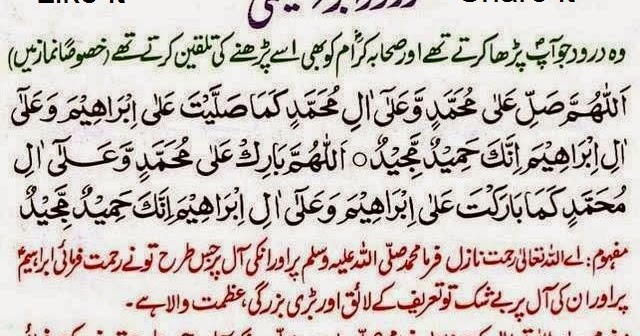 Like it Share it
وہ درود جو آپؐ پڑھا کرتے تھے اور صحابہ کرامؓ کو بھی اسے پڑھنے کی تلقین کرتے تھے (خصوصاً نماز میں)
اَللّٰهُمَّ صَلِّ عَلٰى مُحَمَّدٍ وَّعَلٰٓى اٰلِ مُحَمَّدٍ كَمَا صَلَّيْتَ عَلٰٓى اِبْرَاهِيْمَ وَعَلٰٓى
اٰلِ اِبْرَاهِيْمَ اِنَّكَ حَمِيْدٌ مَّجِيْدٌ○ اَللّٰهُمَّ بَارِكْ عَلٰى مُحَمَّدٍ وَّعَلٰٓى اٰلِ
مُحَمَّدٍ كَمَا بَارَكْتَ عَلٰٓى اِبْرَاهِيْمَ وَعَلٰٓى اٰلِ اِبْرَاهِيْمَ اِنَّكَ حَمِيْدٌ مَّجِيْدٌ
مفہوم: اے اللہ تعالیٰ رحمت نازل فرما محمد صلی اللہ علیہ وسلم پر اور انکی آل پر جس طرح تو نے رحمت فرمائی ابراہیمؑ
پر اور ان کی آل پر بے شک تو تعریف کے لائق اور بڑی بزرگی، عظمت والا ہے۔